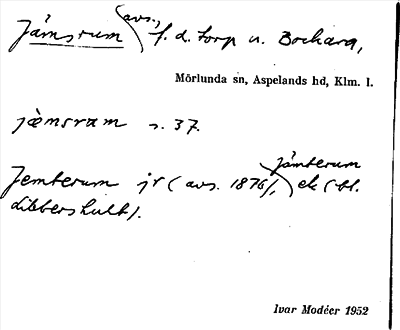 Jämsrum avs., f. d. torp u. Bockara,
Mörlunda sn, Aspelands hd, Klm. l.
jæmsram s. 37.
Jemterum jr (avs. 1876), Jämterum ek (bl.
dibbershult).
Ivar Modéer 1952